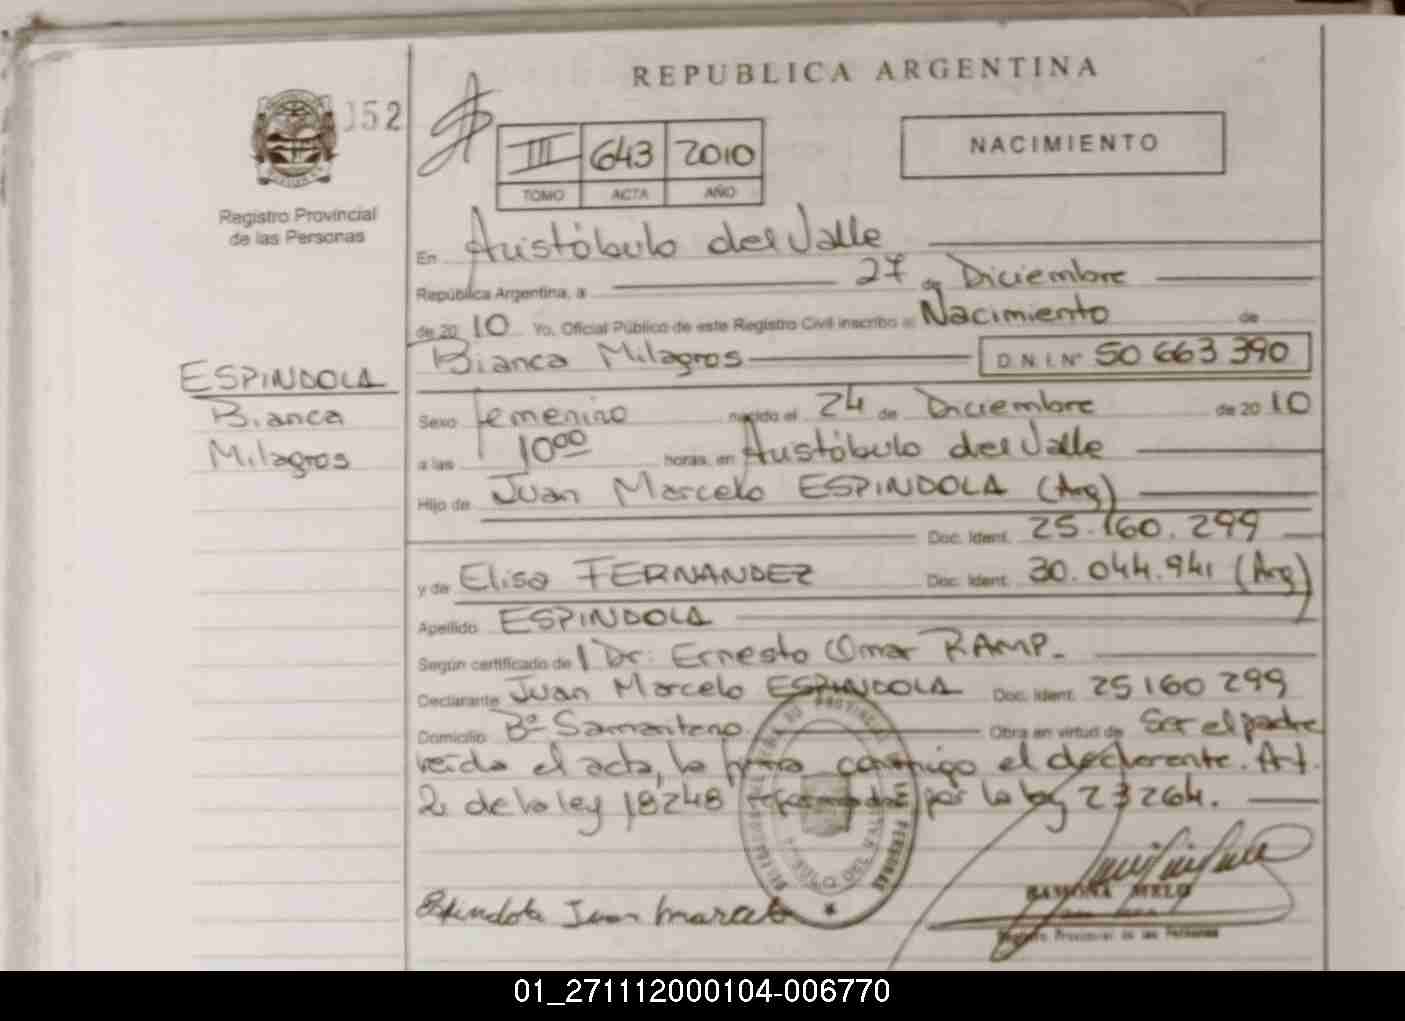 REPUBLICA ARGENTINA
152
III 643 2010
TOMO ACTA AÑO
NACIMIENTO
Registro Provincial
de las Personas
En Aristóbulo del Valle
República Argentina, a 27 de Diciembre
de 20 10 Yo, Oficial Público de este Registro Civil inscribo el Nacimiento de
Bianca Milagros D.N.I. Nº 50 663 390
ESPINDOLA
Bianca
Milagros
Sexo femenino nacido el 24 de Diciembre de 20 10
a las 10 00 horas, en Aristóbulo del Valle
Hijo de Juan Marcelo ESPINDOLA (Arg)
Doc. Ident. 25.160.299
y de Elisa FERNANDEZ Doc. Ident. 30.044.941 (Arg)
Apellido ESPINDOLA
Según certificado de l Dr. Ernesto Omar RAMP.
Declarante Juan Marcelo ESPINDOLA Doc. Ident. 25 160 299
Domicilio Bº Samaritano Obra en virtud de Ser el padre
leída el acta, la firma conmigo el declarante. Art.
2 de la ley 18248 reformada por la ley 23264.
Espindola Juan Marcelo
RAMONA MELO
Registro Provincial de las Personas
01_271112000104-006770